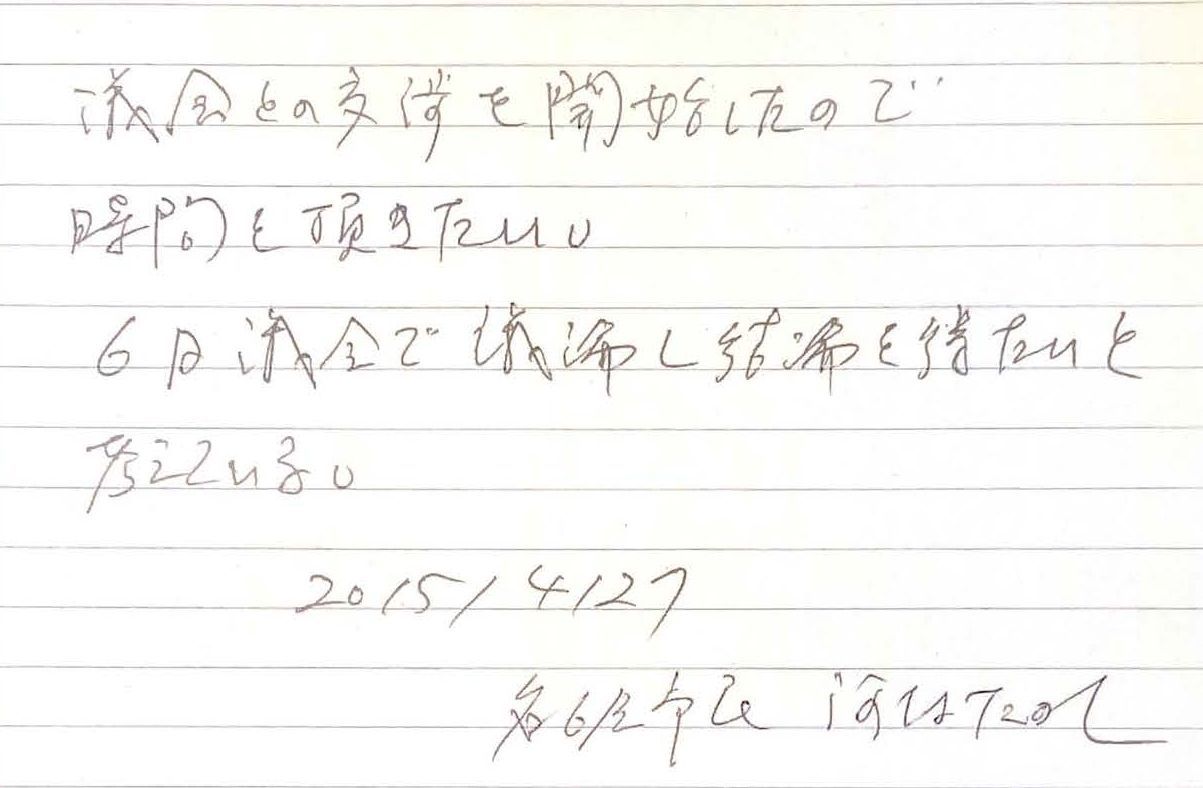 議会との交渉を開始したので
時間を頂きたい。
6月議会で議論し結論を得たいと
考えている。
2015/4/27
名古屋市長 河村たかし